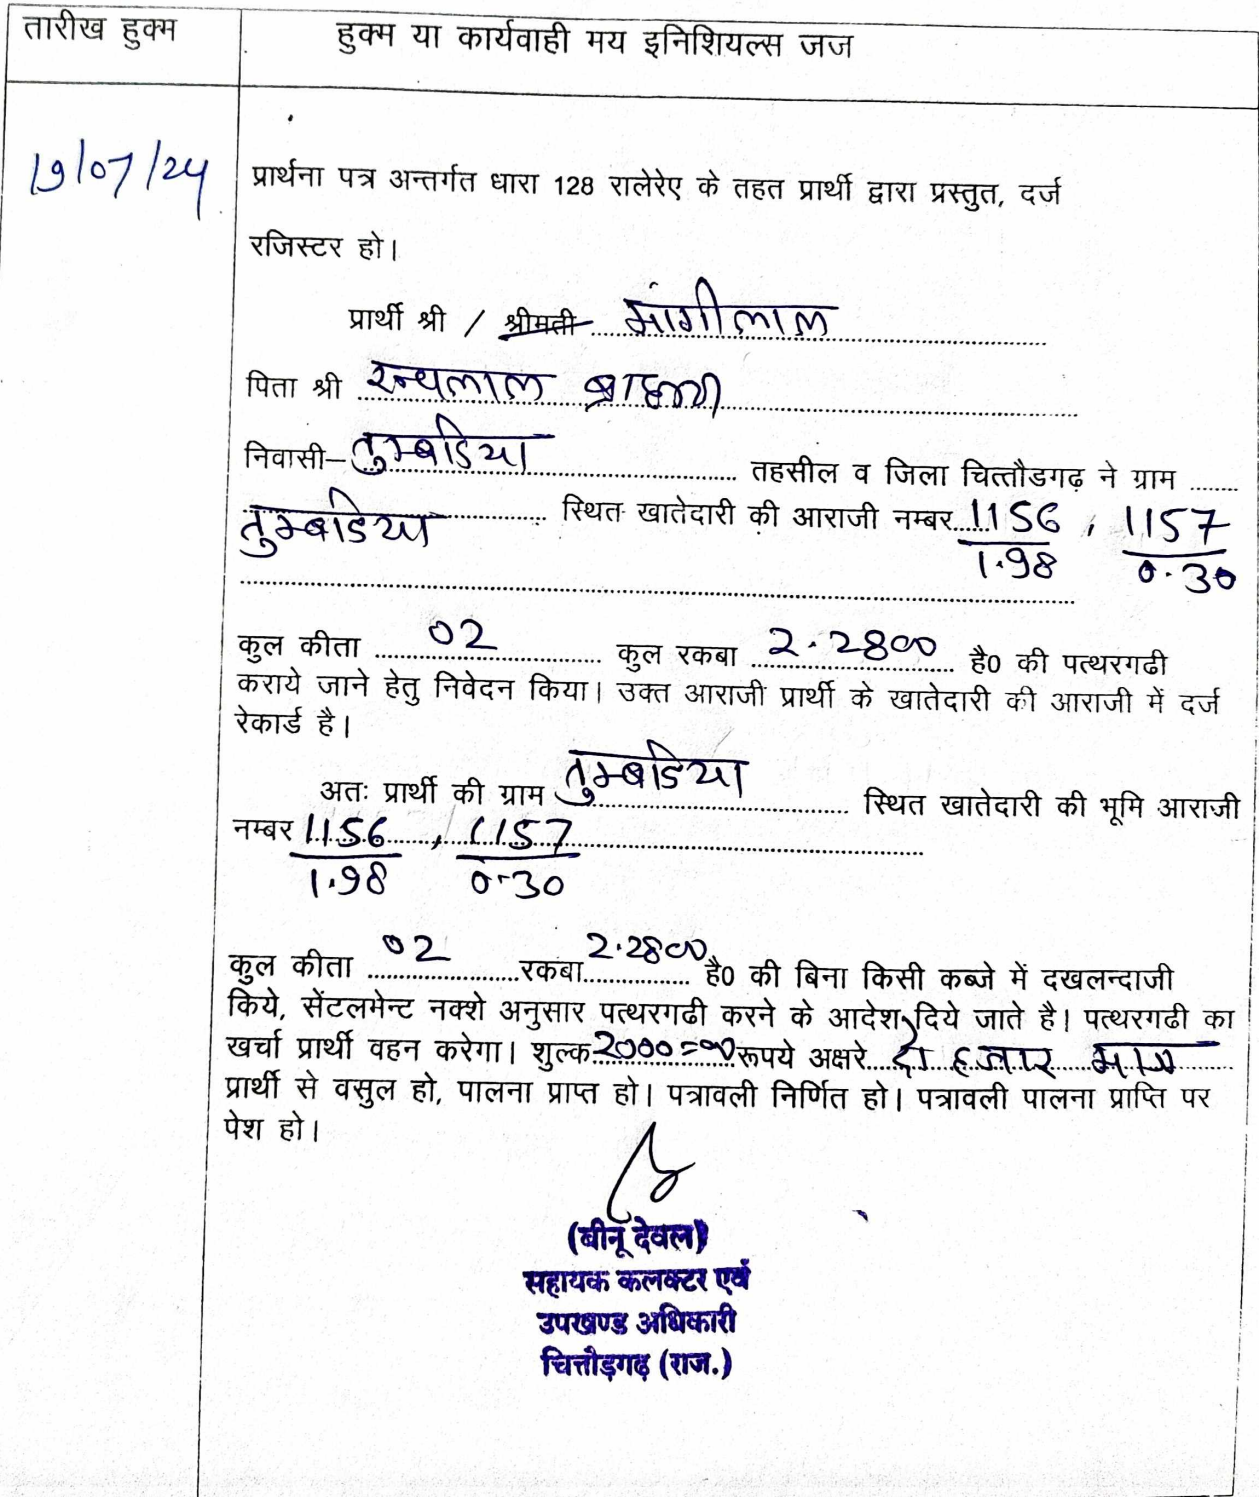 तारीख हुक्म
हुक्म या कार्यवाही मय इनिशियल्स जज
19/07/24
प्रार्थना पत्र अन्तर्गत धारा 128 रालेरेए के तहत प्रार्थी द्वारा प्रस्तुत, दर्ज
रजिस्टर हो।
प्रार्थी श्री / श्रीमती मांगीलाल
पिता श्री लाल ब्राह्मण
निवासी– तुम्बडिया तहसील व जिला चित्तौडगढ़ ने ग्राम
तुम्बडिया स्थित खातेदारी की आराजी नम्बर 1156 , 1157
1.98 0.30
कुल कीता 02 कुल रकबा 2.2800 है0 की पत्थरगढी
कराये जाने हेतु निवेदन किया। उक्त आराजी प्रार्थी के खातेदारी की आराजी में दर्ज
रेकार्ड है।
अतः प्रार्थी की ग्राम तुम्बडिया स्थित खातेदारी की भूमि आराजी
नम्बर 1156 , 1157
1.98 0.30
कुल कीता 02 रकबा 2.2800 है0 की बिना किसी कब्जे में दखलन्दाजी
किये, सेंटलमेन्ट नक्शे अनुसार पत्थरगढी करने के आदेश दिये जाते है। पत्थरगढी का
खर्चा प्रार्थी वहन करेगा। शुल्क 2000=00 रूपये अक्षरे दो हजार मात्र
प्रार्थी से वसुल हो, पालना प्राप्त हो। पत्रावली निर्णित हो। पत्रावली पालना प्राप्ति पर
पेश हो।
(बीनू देवल)
सहायक कलक्टर एवं
उपखण्ड अधिकारी
चित्तौड़गढ़ (राज.)